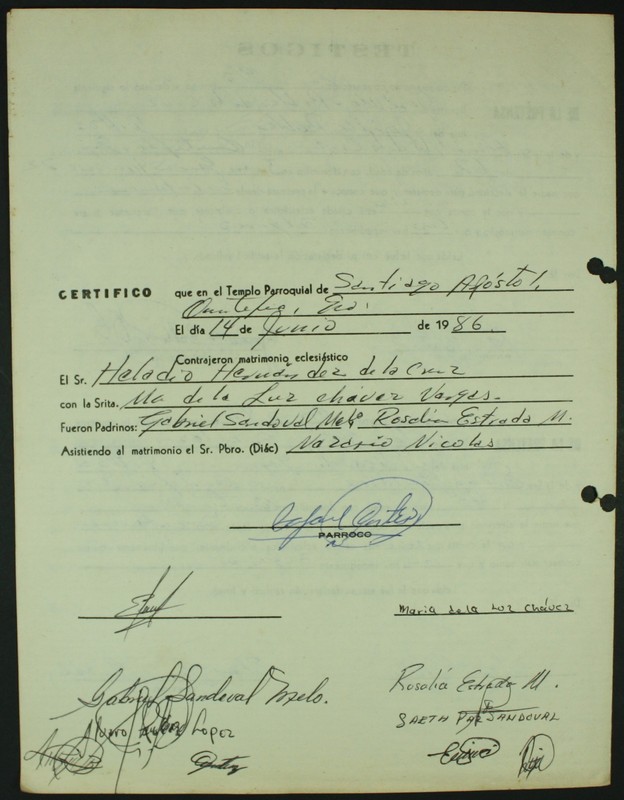 CERTIFICO que en el Templo Parroquial de Santiago Apóstol,
El día 14 de Junio de 1986.
Contrajeron matrimonio eclesiástico
El Sr. Heladio Hernández de la Cruz
con la Srita. Ma de la Luz Chávez Vargas.
Fueron Padrinos: Gabriel Sandoval Melº Rosalía Estrada M.
Asistiendo al matrimonio el Sr. Pbro. (Diác) Nazario Nicolas
Rafael
PARROCO
Maria de la Luz Chávez
Gabriel Sandoval Melo.
Rosalía Estrada M.
Alvaro Lopez
SAETH PAZ SANDOVAL